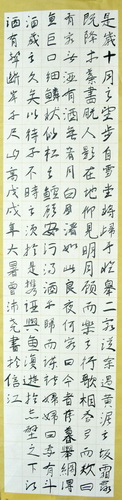 是歲十月之望步自雪堂將歸于臨皋二客從余過黃泥之坂霜露
既降木葉盡脫人影在地仰見明月顧而樂之行歌相答已而歎曰
有客無酒有酒無肴月白風清如此良夜何客曰今者薄暮舉網得
魚巨口細鱗狀似松江之鱸顧安所得酒乎歸而謀諸婦婦曰我有斗
酒藏之久矣以待子不時之須於是攜酒與魚復遊於赤壁之下江
流有聲斷岸千尺山高戊戌年大暑曾沛書於信江